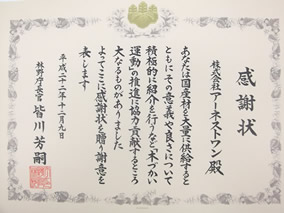 感謝状
株式会社アーネストワン殿
あなたは国産材を大量に供給すると
ともにその意義や良さについて
積極的に紹介を行うなど「木づかい
運動」の推進に協力貢献するところ
大なるものがありました
よってここに感謝状を贈り謝意を
表します
平成二十二年十一月九日
林野庁長官 皆川芳嗣